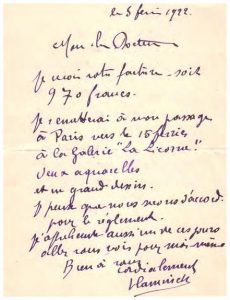 le 5 févrie 1922.
Mon cher Docteur
Je reçois votre facture - soit
970 francs.
Je remettrai à mon passage
à Paris vers le 15 février
à la Galerie "La Licorne"
deux aquarelles
et un grand dessin.
Je pense que nous serons d'accord
pour le règlement.
J'
aussi un de ces jours
aller vous voir pour moi même
Bien à vous
cordialement
Vlaminck